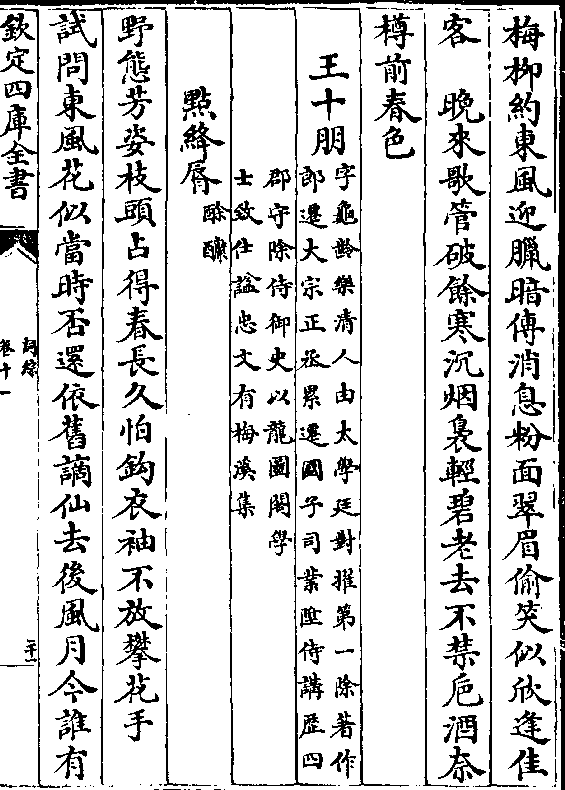 梅柳約東風迎臘暗傳消息粉面翠眉偷笑似欣逢佳
客　晩來歌管破餘寒沉烟裊輕碧老去不禁巵酒奈
樽前春色
王十朋
字龜齡樂清人由太學廷對擢第一除著作
郎遷大宗正丞累遷國子司業陞侍講歴四
郡守除侍御史以龍圖閣學
士致仕諡忠文有梅溪集
點絳脣
酴醿
野態芳姿枝頭占得春長久怕鉤衣袖不放攀花手
試問東風花似當時否還依舊謫仙去後風月今誰有
欽定四庫全書
詞綜
卷十一
二十一